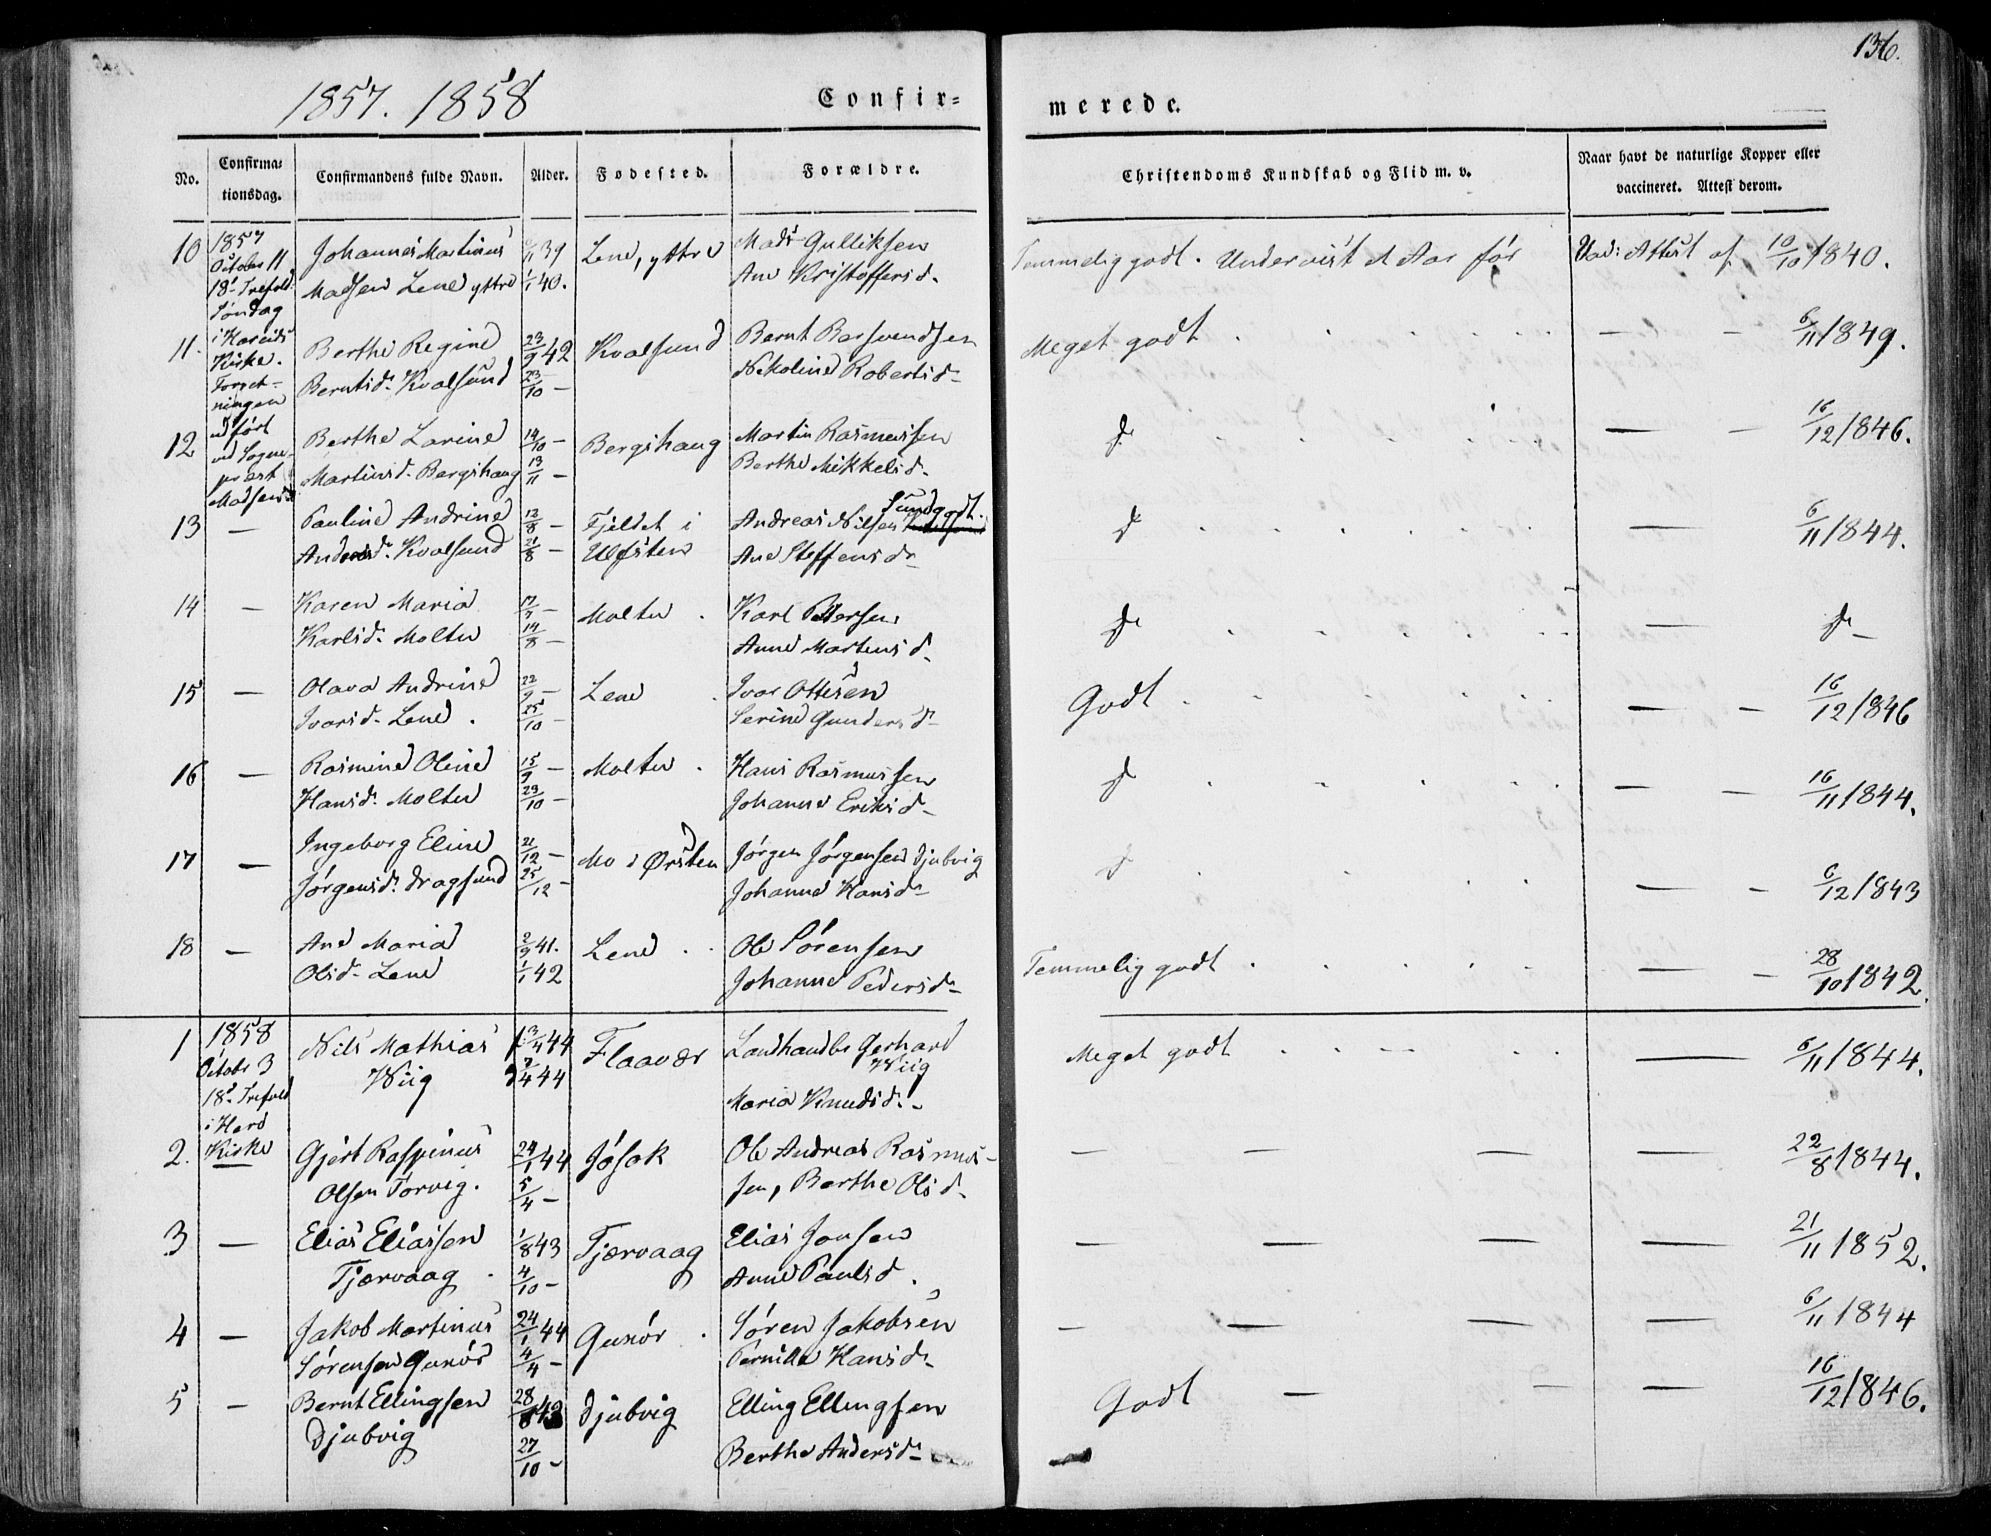 136.
1857. 1858
Confir=
merede.
No.
Confirma=
tionsdag.
Confirmandens fulde Navn.
Alder.
Fødested.
Forældre.
Christendoms Kundskab og Flid m. v.
Naar havt de naturlige Kopper eller
vaccineret. Attest derom.
10
1857
October 11
18d Trefold.
Søndag
Johannes Martinus
Madsen Lene yttre
39
1/1 40.
Lene, yttre
Mads Gulliksen
Ane Kristoffersd.
Temmelig godt. Underviist et Aar før
Vad: Attest af 10/10 1840.
11.
i Hareids
Kirke.
Forret-
ningen
Berthe Regine
Berntsd. Kvalsund
23/9 42
23/10 —
Kvalsund
Bernt Barsvendsen
Nikoline Robertsd.
Meget godt . . . . . . — — 6/11 1849.
12
udført
ved Sogne-
præst
Madsen
Berthe Larine
Martinsd. Bergshaug
14/10 —
13/11 —
Bergshaug
Martin Rasmussen
Berthe Mikkelsd.
d . . . . . — — 16/12 1846.
13 —
Pauline Andrine
Andersd. Kvalsund
12/8 —
21/8 —
Fjeldet i
Ulfsten
Sundggdt.
Andreas Nilsen
Ane Steffensd.
d . . . . — — 6/11 1844.
14 —
Karen Maria
Karlsd. Moltu
17/7 —
14/8 —
Moltu .
Karl Pettersen
Anne Martensd.
d . . . . — d —
15 —
Olava Andrine
Ivarsd. Lene .
22/9 —
25/10 —
Lene .
Ivar Ottesen
Serine Gundersd.
Godt . . . . — — 16/12 1846
16 —
Rasmine Oline
Hansd. Moltu
15/9 —
23/10 —
Moltu .
Hans Rasmussen
Johanne Eriksd.
d . . . . — — 16/11 1844.
17 —
Ingeborg Eline
Jørgensd. Dragsund
21/12 —
25/12 —
Mo i Ørsten
Jørgen Jørgensen Djubvig
Johanne Hansd.
d . . . — — 6/12 1843
18 —
Ane Maria
Olsd. Lene
2/9 41.
1/1 42
Lene . .
Ole Sørensen
Johanne Pedersd.
Temmelig godt . . . . . — — 28/10 1842.
1
1858
Octobr 3
18d Trefold
i Herø
Nils Mathias
Wiig
44
44
Flaavær
Landhandler Gerhard
Wiig
Maria Knudsd.
Meget godt . . . . — 6/11 1844.
2.
Kirke
Gjert Raspinus
Olsen Torvig.
24/1 44
5/4 —
Jøsok
Ole Andreas Rasmus-
sen, Berthe Olsd.
— — — — 22/8 1844.
3 —
Elias Eliassen
Tjærvaag .
1/8 43
4/10 —
Tjærvaag
Elias Jonsen
Anne Paulsd.
— — — — 21/11 1852.
4 —
Jakob Martinus
Sørensen Gurør
24/1 44
4/4 —
Gurør .
Søren Jakobsen
Pernille Hansd.
— — — — 6/11 1844
5 —
Bernt Ellingsen
Djubvig
28/8 43
27/10 —
Djubvig
Elling Ellingsen
Berthe Andersd.
Godt — — — 16/12 1846.